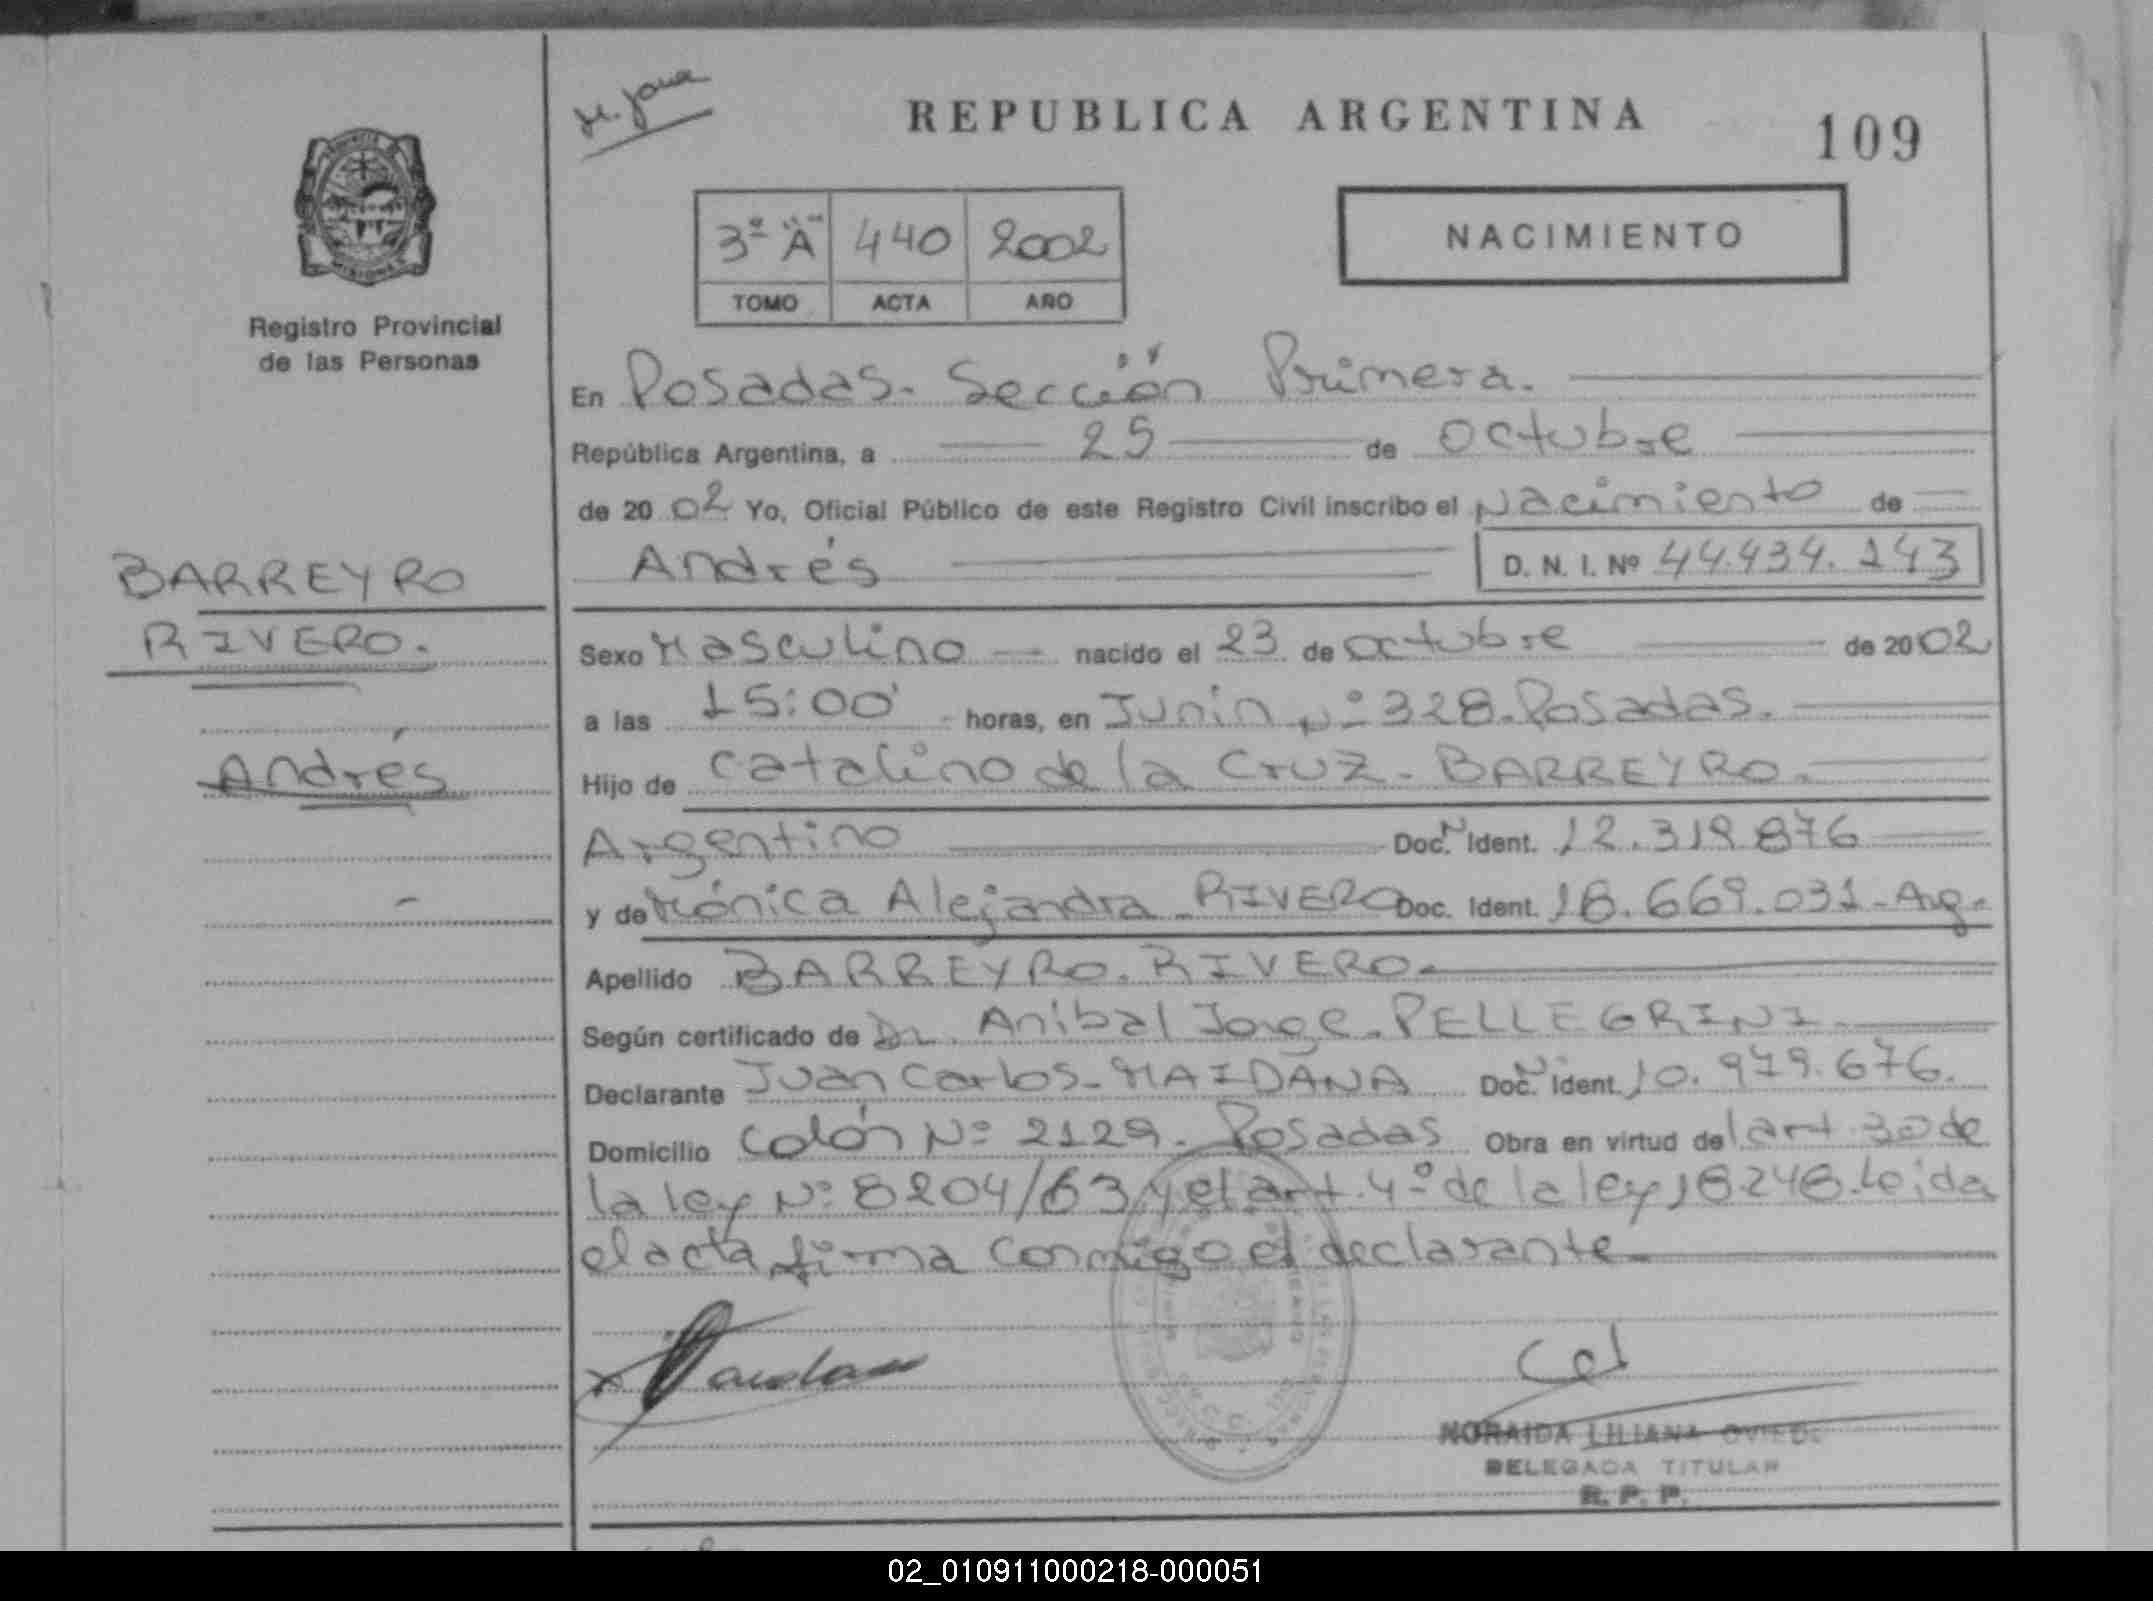 REPUBLICA ARGENTINA
109
3º "A" 440 2002
TOMO ACTA AÑO
NACIMIENTO
Registro Provincial
de las Personas
En Posadas. Sección Primera.
República Argentina, a 25 de octubre
de 2002 Yo, Oficial Público de este Registro Civil inscribo el Nacimiento de
Andrés D. N. I. Nº 44.434.143
BARREYRO
RIVERO.
Andrés
Sexo Masculino nacido el 23 de octubre de 2002
a las 15:00 horas, en Junín Nº 328. Posadas.
Hijo de Catalino de la Cruz. BARREYRO.
Argentino Doc. N Ident. 12.319.876
y de Mónica Alejandra. RIVERO Doc. Ident. 18.669.031. Arg.
Apellido BARREYRO. RIVERO.
Según certificado de Dr. Anibal Jorge. PELLEGRINI.
Declarante Juan Carlos. MAIDANA Doc. N Ident. 10.979.676.
Domicilio Colón Nº 2129. Posadas Obra en virtud del art. 30 de
la ley Nº 8204/63 y el art. 4º de la ley 18248. Leída
el acta firma conmigo el declarante.
NORAIDA LILIANA OVIEDO
DELEGADA TITULAR
R. P. P.
02_010911000218-000051